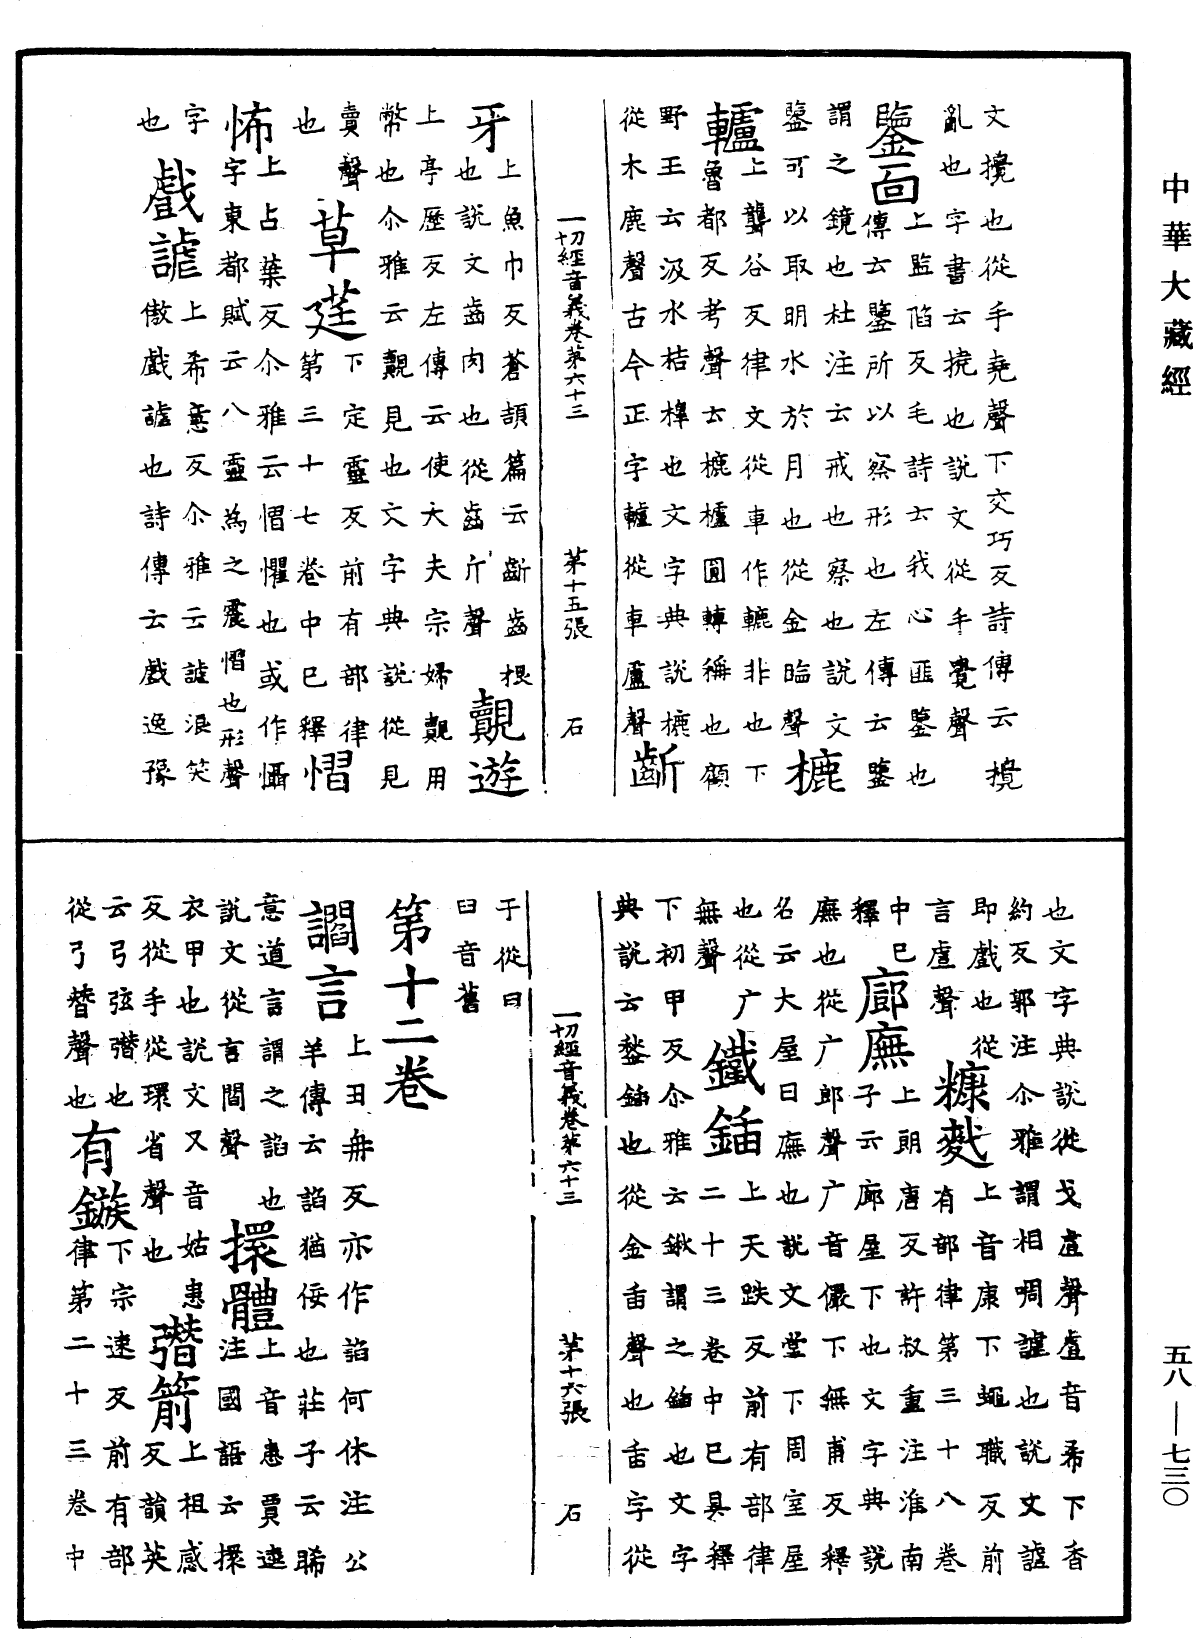 中華大藏經
文攪也從手堯聲下交巧反詩傳云攪
亂也字書云撓也說文從手覺聲
鑒面上監陷反毛詩云我心匪鑒也
傳云鑒所以察形也左傳云鑒
謂之鏡也杜注云戒也察也說文
鑒可以取明水於月也從金臨聲 樚
轤上聾谷反律文從車作轆非也下
魯都反考聲云樚櫨圓轉稱也顧
野王云汲水桔槔也文字典說樚
從木鹿聲古今正字轤從車盧聲 齗
一切經音義卷第六十三 第十五張 石
牙上魚巾反蒼頡篇云齗齒根
也說文齒肉也從齒斤聲 覿遊
上亭歷反左傳云使大夫宗婦覿用
幣也尒雅云覿見也文字典說從見
賣聲 草莛下定靈反前有部律
也第三十七卷中已釋 慴
怖上占葉反尒雅云慴懼也或作懾
字東都賦云八靈為之震慴也形聲
字 戲謔上希意反尒雅云謔浪笑
也傲戲謔也詩傳云戲逸豫
也文字典說從戈䖒聲䖒音希下香
約反郭注尒雅謂相啁謔也說文謔
即戲也從言虐聲 糠麧上音康下蠅職反前
有部律第三十八卷
中已釋 廊廡上朗唐反許叔重注淮南
子云廊屋下也文字典說
廡也從广郎聲广音儼下無甫反釋
名云大屋曰廡也說文堂下周室屋
也從广無聲 鐵鍤上天跌反前有部律
二十三卷中已具釋
下初甲反尒雅云鍬謂之鍤也文字
典說云鍫鍤也從金臿聲也臿字從
一切經音義卷第六十三 第十六張 石
干從臼
臼音舊
第十二卷
讇言上丑冉反亦作諂何休注公
羊傳云諂猶佞也莊子云睎
意道言謂之諂也
說文從言閻聲 擐體上音患賈逵
注國語云擐
衣甲也說文又音姑患
反從手從環省聲也 䇔箭上祖感
反韻英
云弓弦䇔也下宗速反前有部
從弓朁聲也 有鏃律第二十三卷中
五八—七三〇